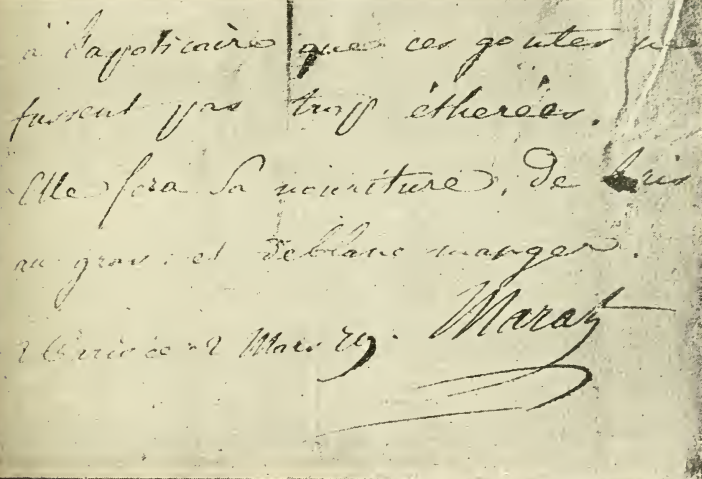 à l'appoticaire que ces goutes ne
fussent pas trop étherées.
Elle fera sa nouriture, de Ris
au gras. et de blanc manger.
Paris ce 2 Mars 79. Marat